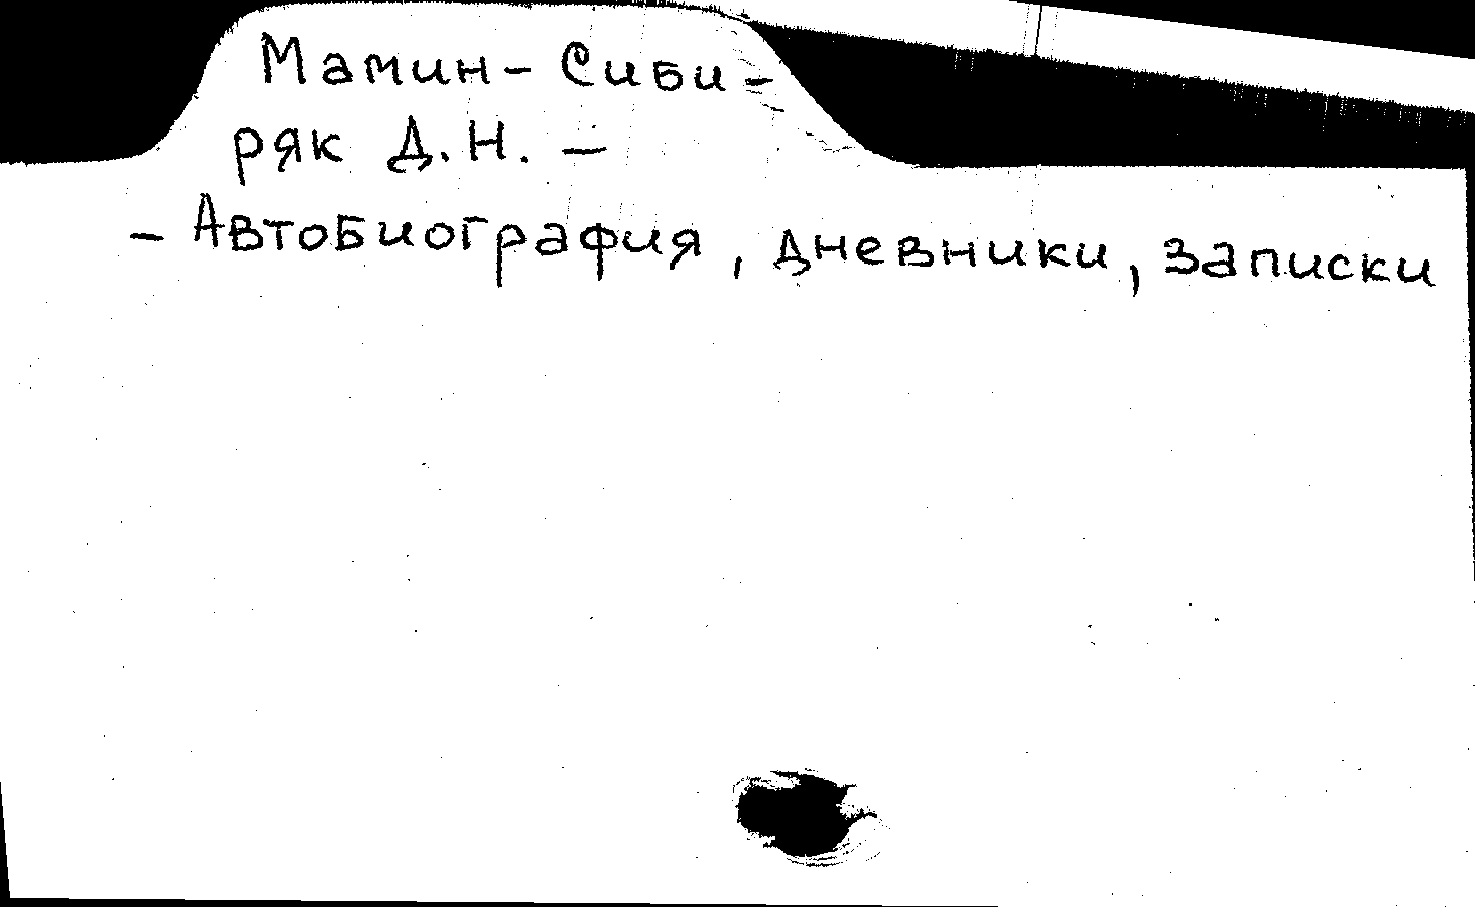 Мамин-Сиби-
ряк Д.Н. –
– Автобиография, дневники, записки